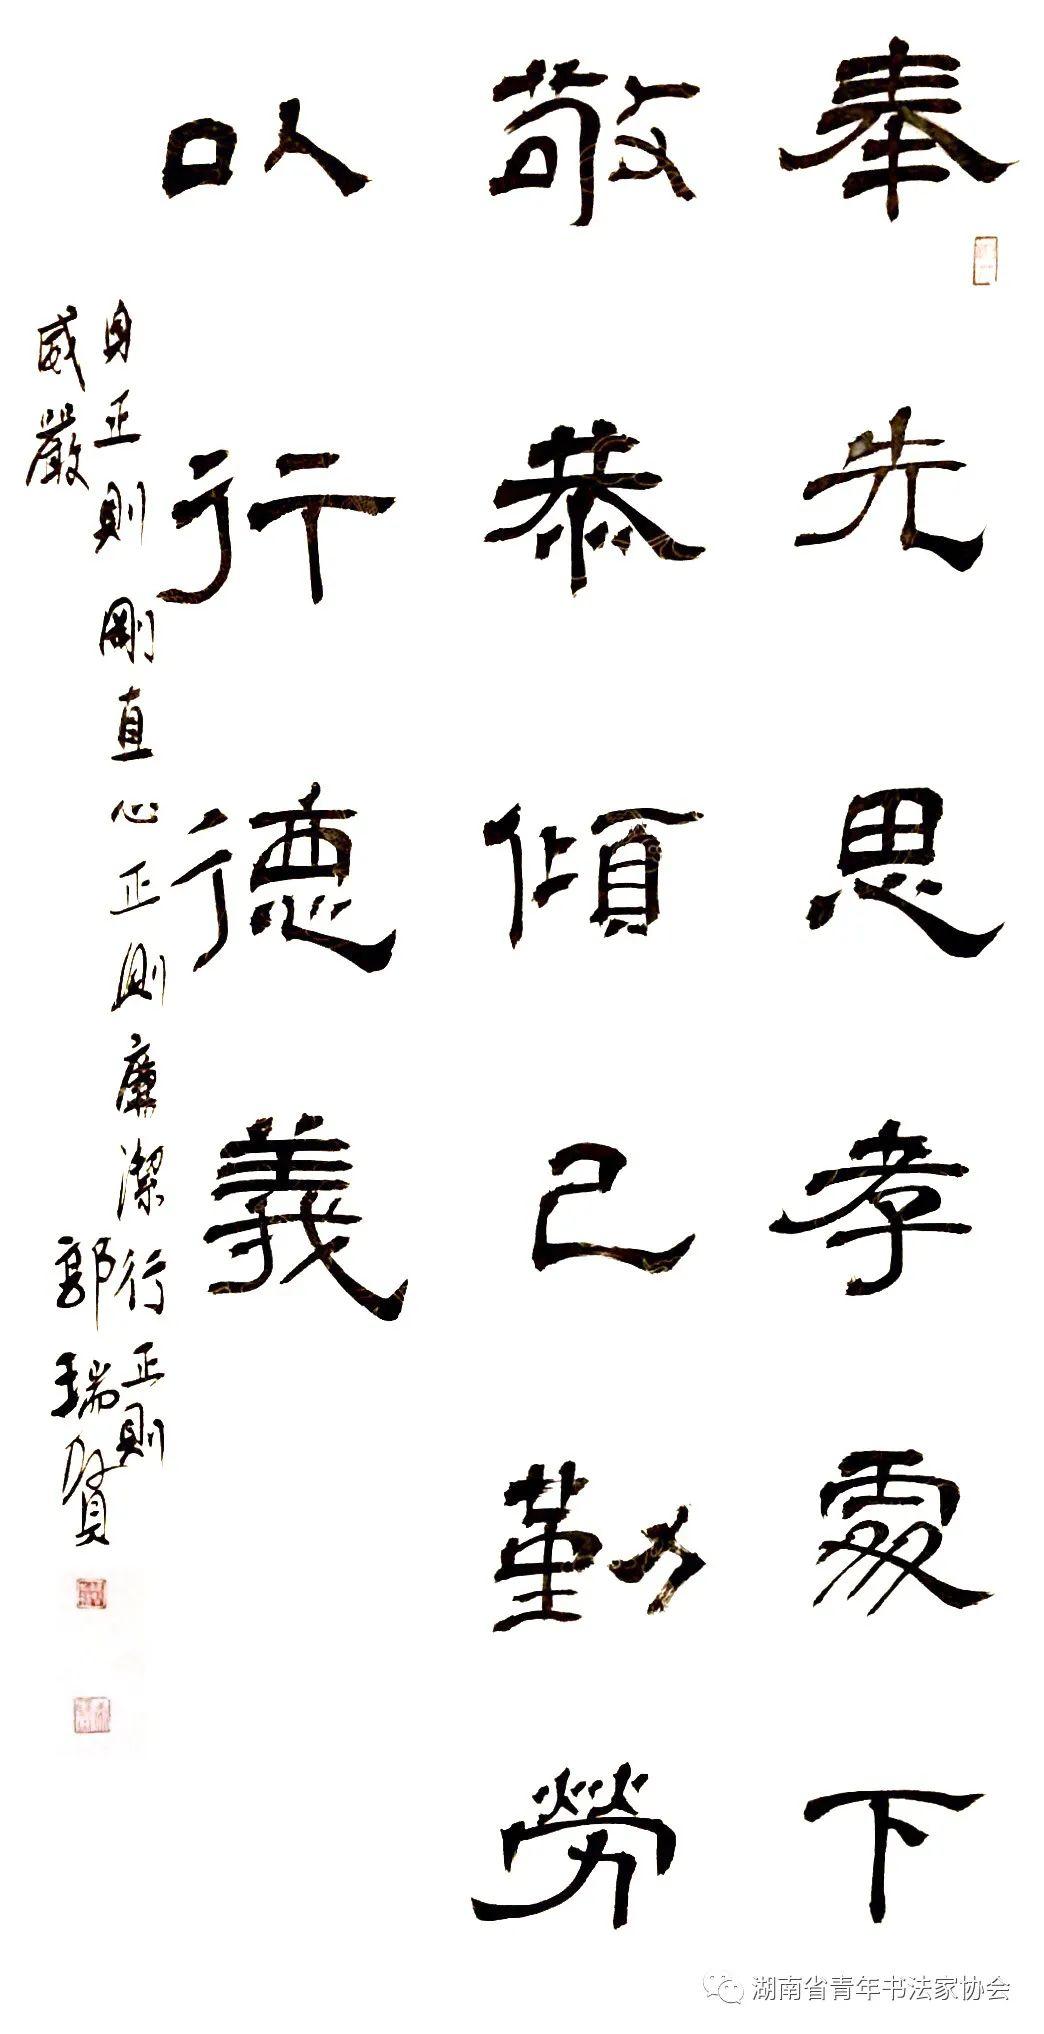 奉先思孝處下
敬恭傾己勤勞
以行德義
身正則剛直心正則廉潔行正則
威嚴
郭瑞賢
湖南省青年书法家协会